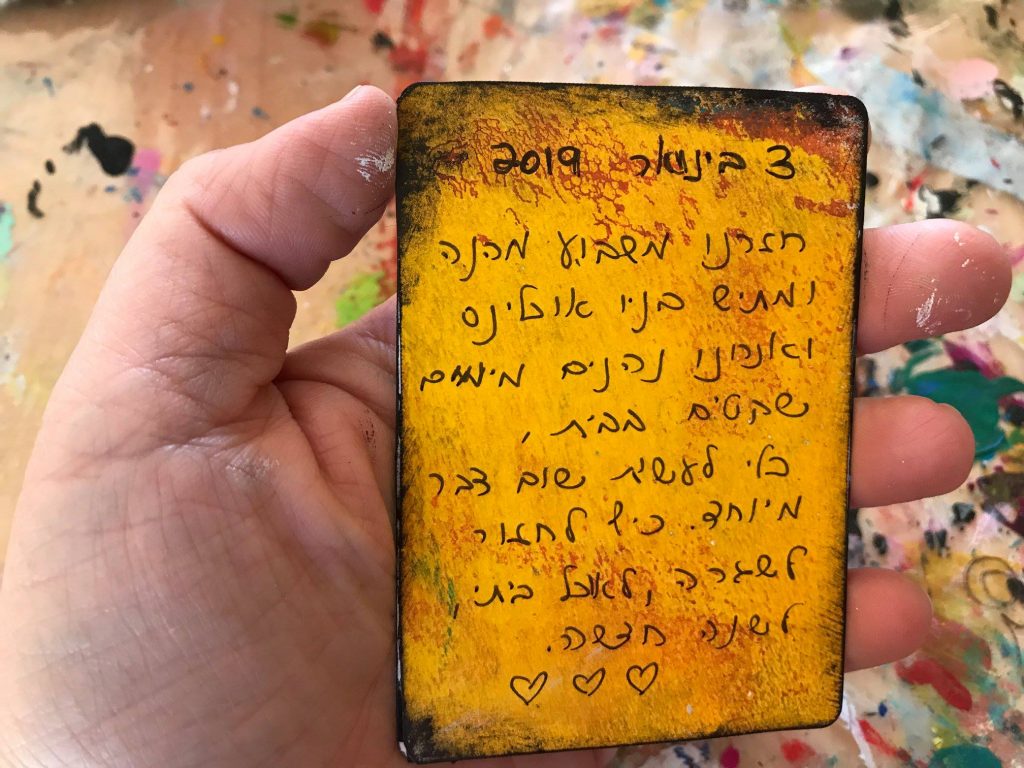 3 בינואר 2019
חזרנו משבוע מהנה
ומתיש בניו אורלינס
ואנחנו נהנים מימים
שקטים בבית,
בלי לעשות שום דבר
מיוחד. כיף לחזור
לשגרה, לאוכל ביתי,
לשנה חדשה.
♡ ♡ ♡